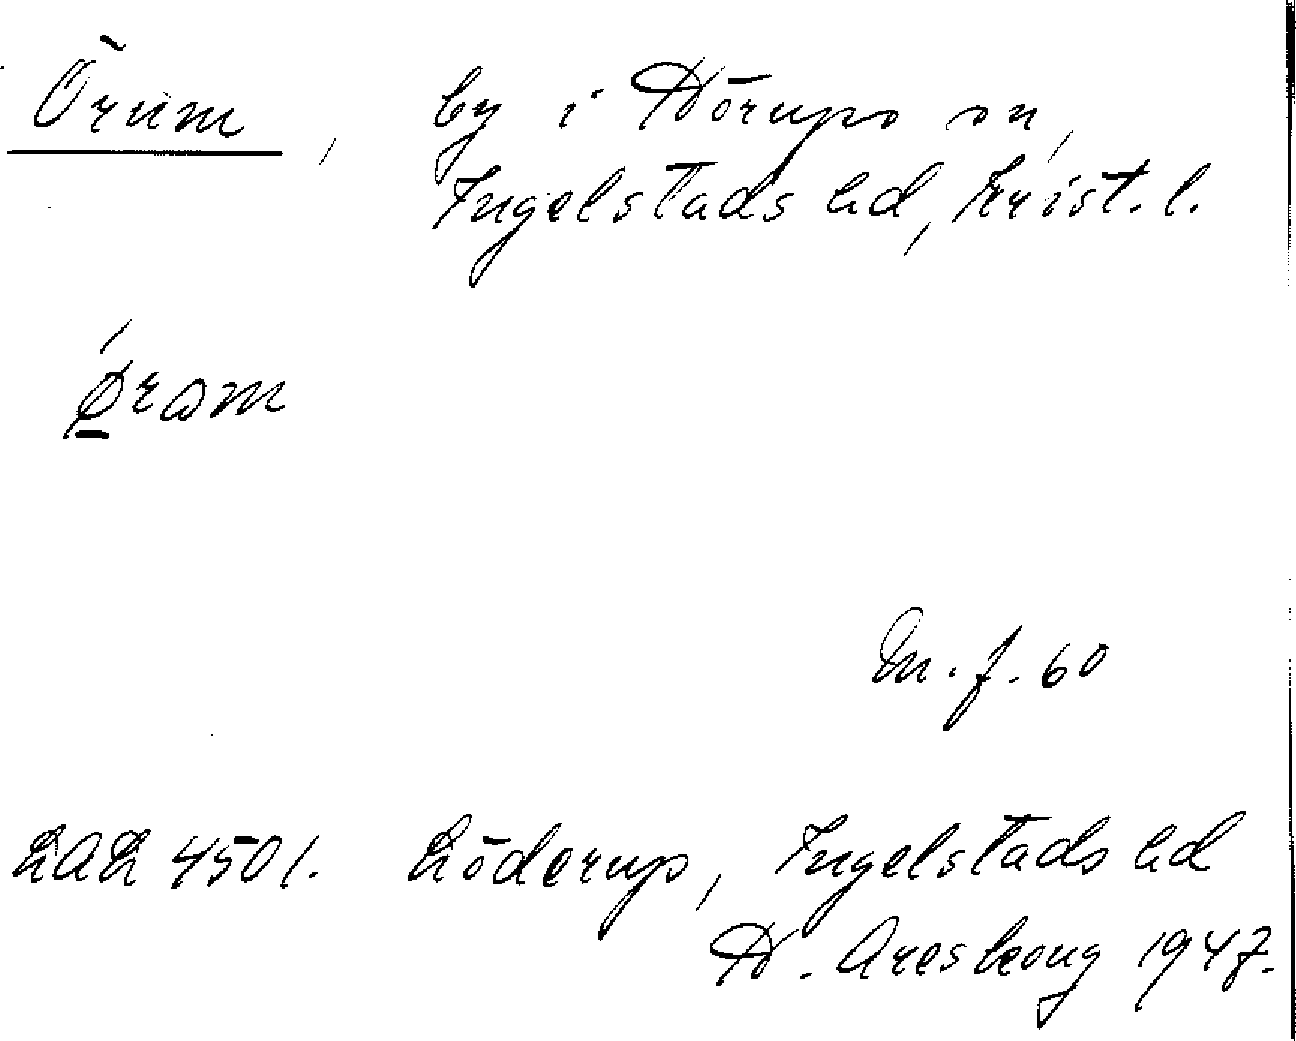 Örum, by i Hörups sn,
Ingelstads hd, Krist. l.
ǿ̱rɷm
M. f. 60
LAL 4501. Löderup, Ingelstads hd
H. Areskoug 1947.